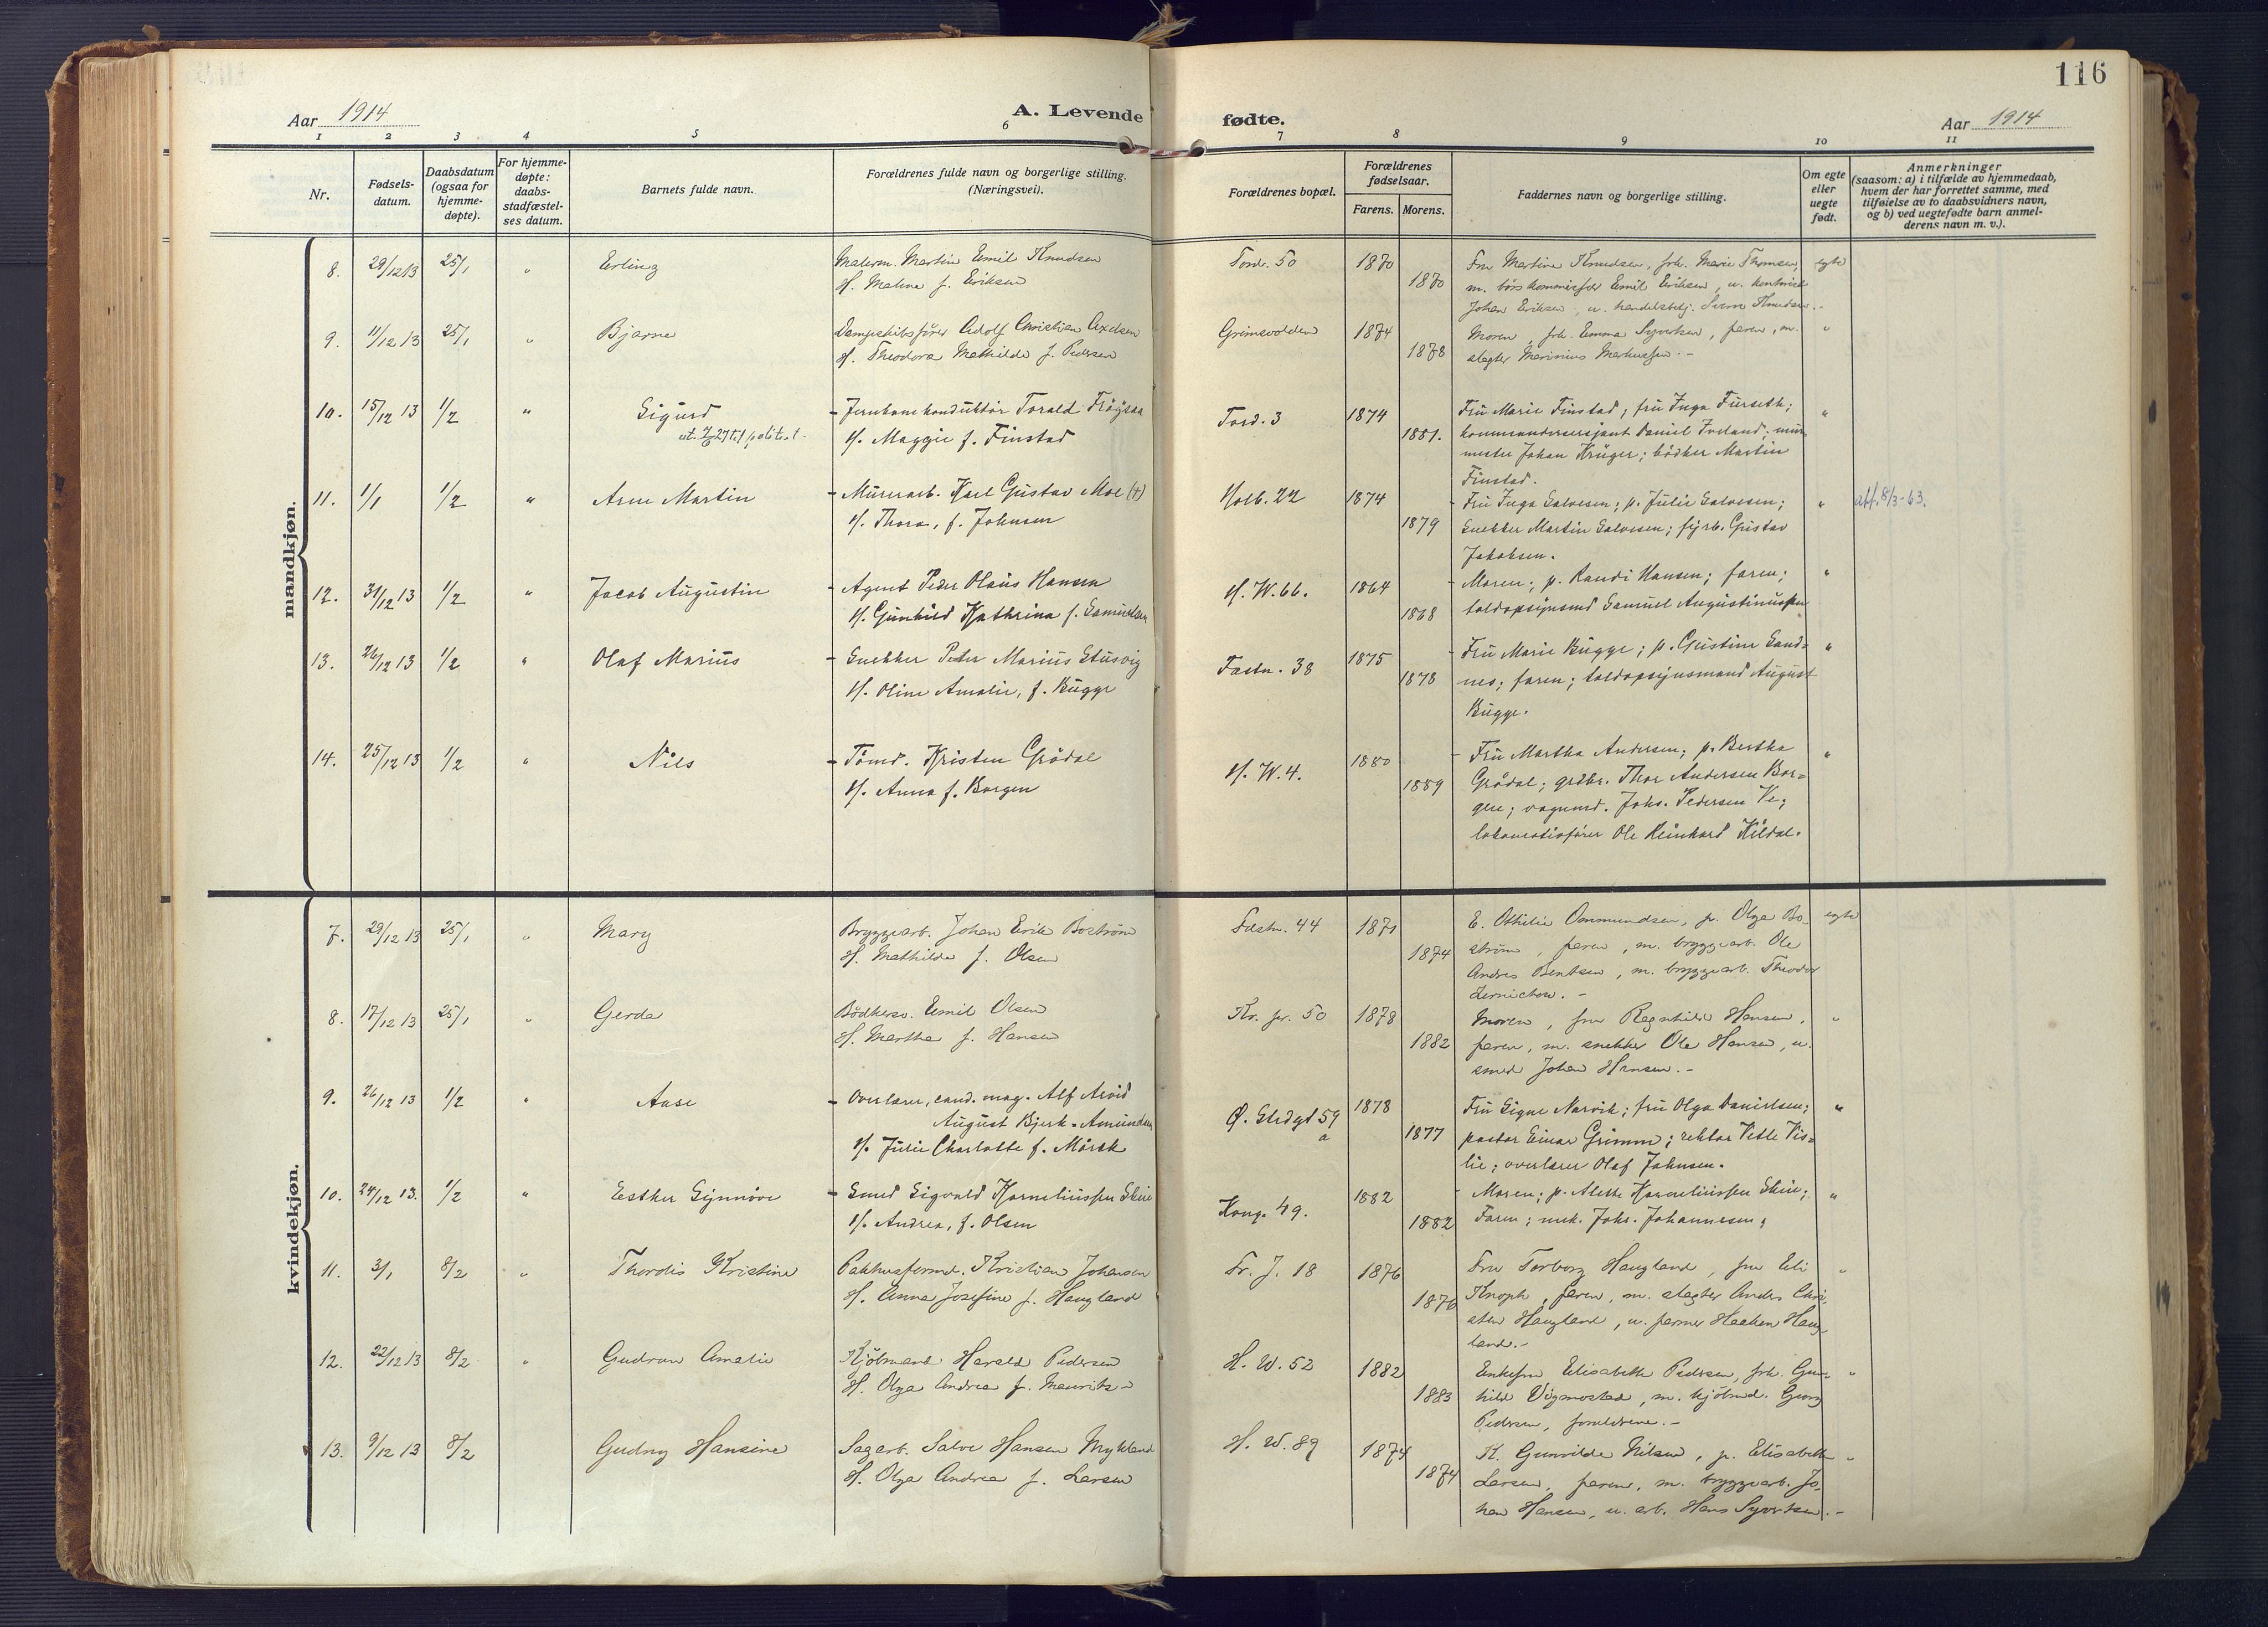 116
Aar 1914
A. Levende fødte.
Aar 1914
1 2 3 4 5 6 7 8 9 10 11
Nr.
Fødsels-
datum.
Daabsdatum
(ogsaa for
hjemme-
døpte).
For hjemme-
døpte:
daabs-
stadfæstel-
ses datum.
Barnets fulde navn.
Forældrenes fulde navn og borgerlige stilling.
(Næringsvei).
Forældrenes bopæl.
Forældrenes
fødselsaar.
Farens. Morens.
Faddernes navn og borgerlige stilling.
Om egte
eller
uegte
født.
Anmerkninger
(saasom: a) i tilfælde av hjemmedaab,
hvem der har forrettet samme, med
tilføielse av to daabsvidners navn,
og b) ved uegtefødte barn anmel-
derens navn m. v.).
mandkjøn.
8. 29/12 13 25/1 " Erling Malerm. Martin Emil Knudsen Tord. 50 1870 Fru Martine Knudsen, frk. Marie Thomsen, egte
H. Malene f. Eriksen 1870 m. børskommissær Emil Eriksen, u. kontorist
Johan Eriksen, u. handelsbetj. Sverre Knudsen.-
9. 11/12 13 25/1 " Bjarne Dampskibsfører Adolf Christian Axelsen Grimsvolden 1874 Moren, frk. Emma Syvertsen, faren, m. "
H. Theodora Mathilde f. Pedersen 1878 slagter Marinius Markussen.-
10. 15/12 13 1/2 " Sigurd - Jernbanekonduktør Torald Frøysaa Tord. 3 1874 Fru Marie Finstad, fru Inga Furseth; "
H. Maggie f. Finstad 1881. kommandersersjant Daniel Iveland; mur-
mester Johan Krüger; bødker Martin
Finstad.
11. 1/1 1/2 " Arne Martin - Murerarb. Karl Gustav Moe (†) Holb. 22 1874 - Fru Inga Salvesen; p. Julie Salvesen; " att. 8/3-63.
H. Thora, f. Johnsen 1879 Snekker Martin Salvesen; fyrb. Gustav
Jakobsen.
12. 31/12 13 1/2 " Jacob Augustin - Agent Peder Olaus Hansen H. W. 66. 1864 - Moren; p. Randi Hansen; faren; "
H. Gunhild Kathrina f. Samuelsen 1868 toldopsynsmd Samuel Augustinussen
13. 26/12 13 1/2 " Olaf Marius - Snekker Peter Marius Stusvig Fæstn. 38 1875 - Fru Marie Bugge; p. Gustine Sand= "
H. Oline Amalie, f. Bugge 1878 nes; faren; toldopsynsmand August
Bugge.
14. 25/12 13 1/2 " Nils - Tømd. Kristen Grødal H. W. 4. 1880 - Fru Martha Andersen; p. Bertha "
H. Anna f. Borgen 1889 Grødal; grdbr. Thor Andersen Bor=
gen; vognmd. Johs. Pedersen Ve;
lokomotivfører Ole Reinhard Kildal.
kvindekjøn.
7. 29/12 13 25/1 " Mary Bryggearb. Johan Erik Boström Fæstn. 44 1871 E. Othilie Ommundsen, p. Olga Bo- egte
H. Mathilde f. Olsen 1874 strøm, faren, m. bryggearb. Ole
Andres Bentsen, m. bryggearb. Theodor
8. 17/12 13 25/1 " Gerda Bødkersv. Emil Olsen Kr. pr. 50 1878 Moren, fru Ragnhild Hansen, "
H. Marthe f. Hansen 1882 faren, m. snekker Ole Hansen, u.
smed Johan Hansen.-
9. 26/12 13 1/2 " Aase - Overlærer, cand. mag. Alf Arvid Ø. Strdgt 59 a 1878 Fru Signe Narvik; fru Olga Danielsen; "
August Bjerk-Amundsen 1877 pastor Einar Grimm; rektor Vetle Vis=
H. Julie Charlotte f. Mørch lie; overlærer Olaf Johnsen.
10. 24/12 13. 1/2 " Esther Synnøve - Smed Sigvald Korneliussen Skie Kong. 49. 1882 - Moren; p. Alette Korneliussen Skie; "
H. Andrea, f. Olsen 1882 Faren; mek. Johs. Johannesen;
11. 3/1 8/2 " Thordis Kristine Pakhusformd. Kristian Johansen Fr. J. 18 1876 Fru Torborg Haugland, fru Eli "
H. Anna Josefine f. Haugland 1876 Knoph, faren, m. slagter Anders Chri-
sten Haugland, u. farmer Haaken Haug-
land.-
12. 22/12 13 8/2 " Gudrun Amalie Kjøbmand Harald Pedersen H. W. 52 1882 Enkefru Elisabeth Pedersen, frk. Gun- "
H. Olga Andrea f. Mauritz- 1883 hild Vigmostad, m. kjøbmd. Georg
Pedersen, forældrene.-
13. 9/12 13 8/2 Gudny Hansine Sagarb. Salve Hansen Mykland H. W. 89 1874 K. Gunvilde Nilsen, p. Elisabeth "
H. Olga Andrea f. Larsen 1874 Larsen, faren, m. bryggearb. Jo-
han Hansen, u. arb. Hans Syvertsen.-